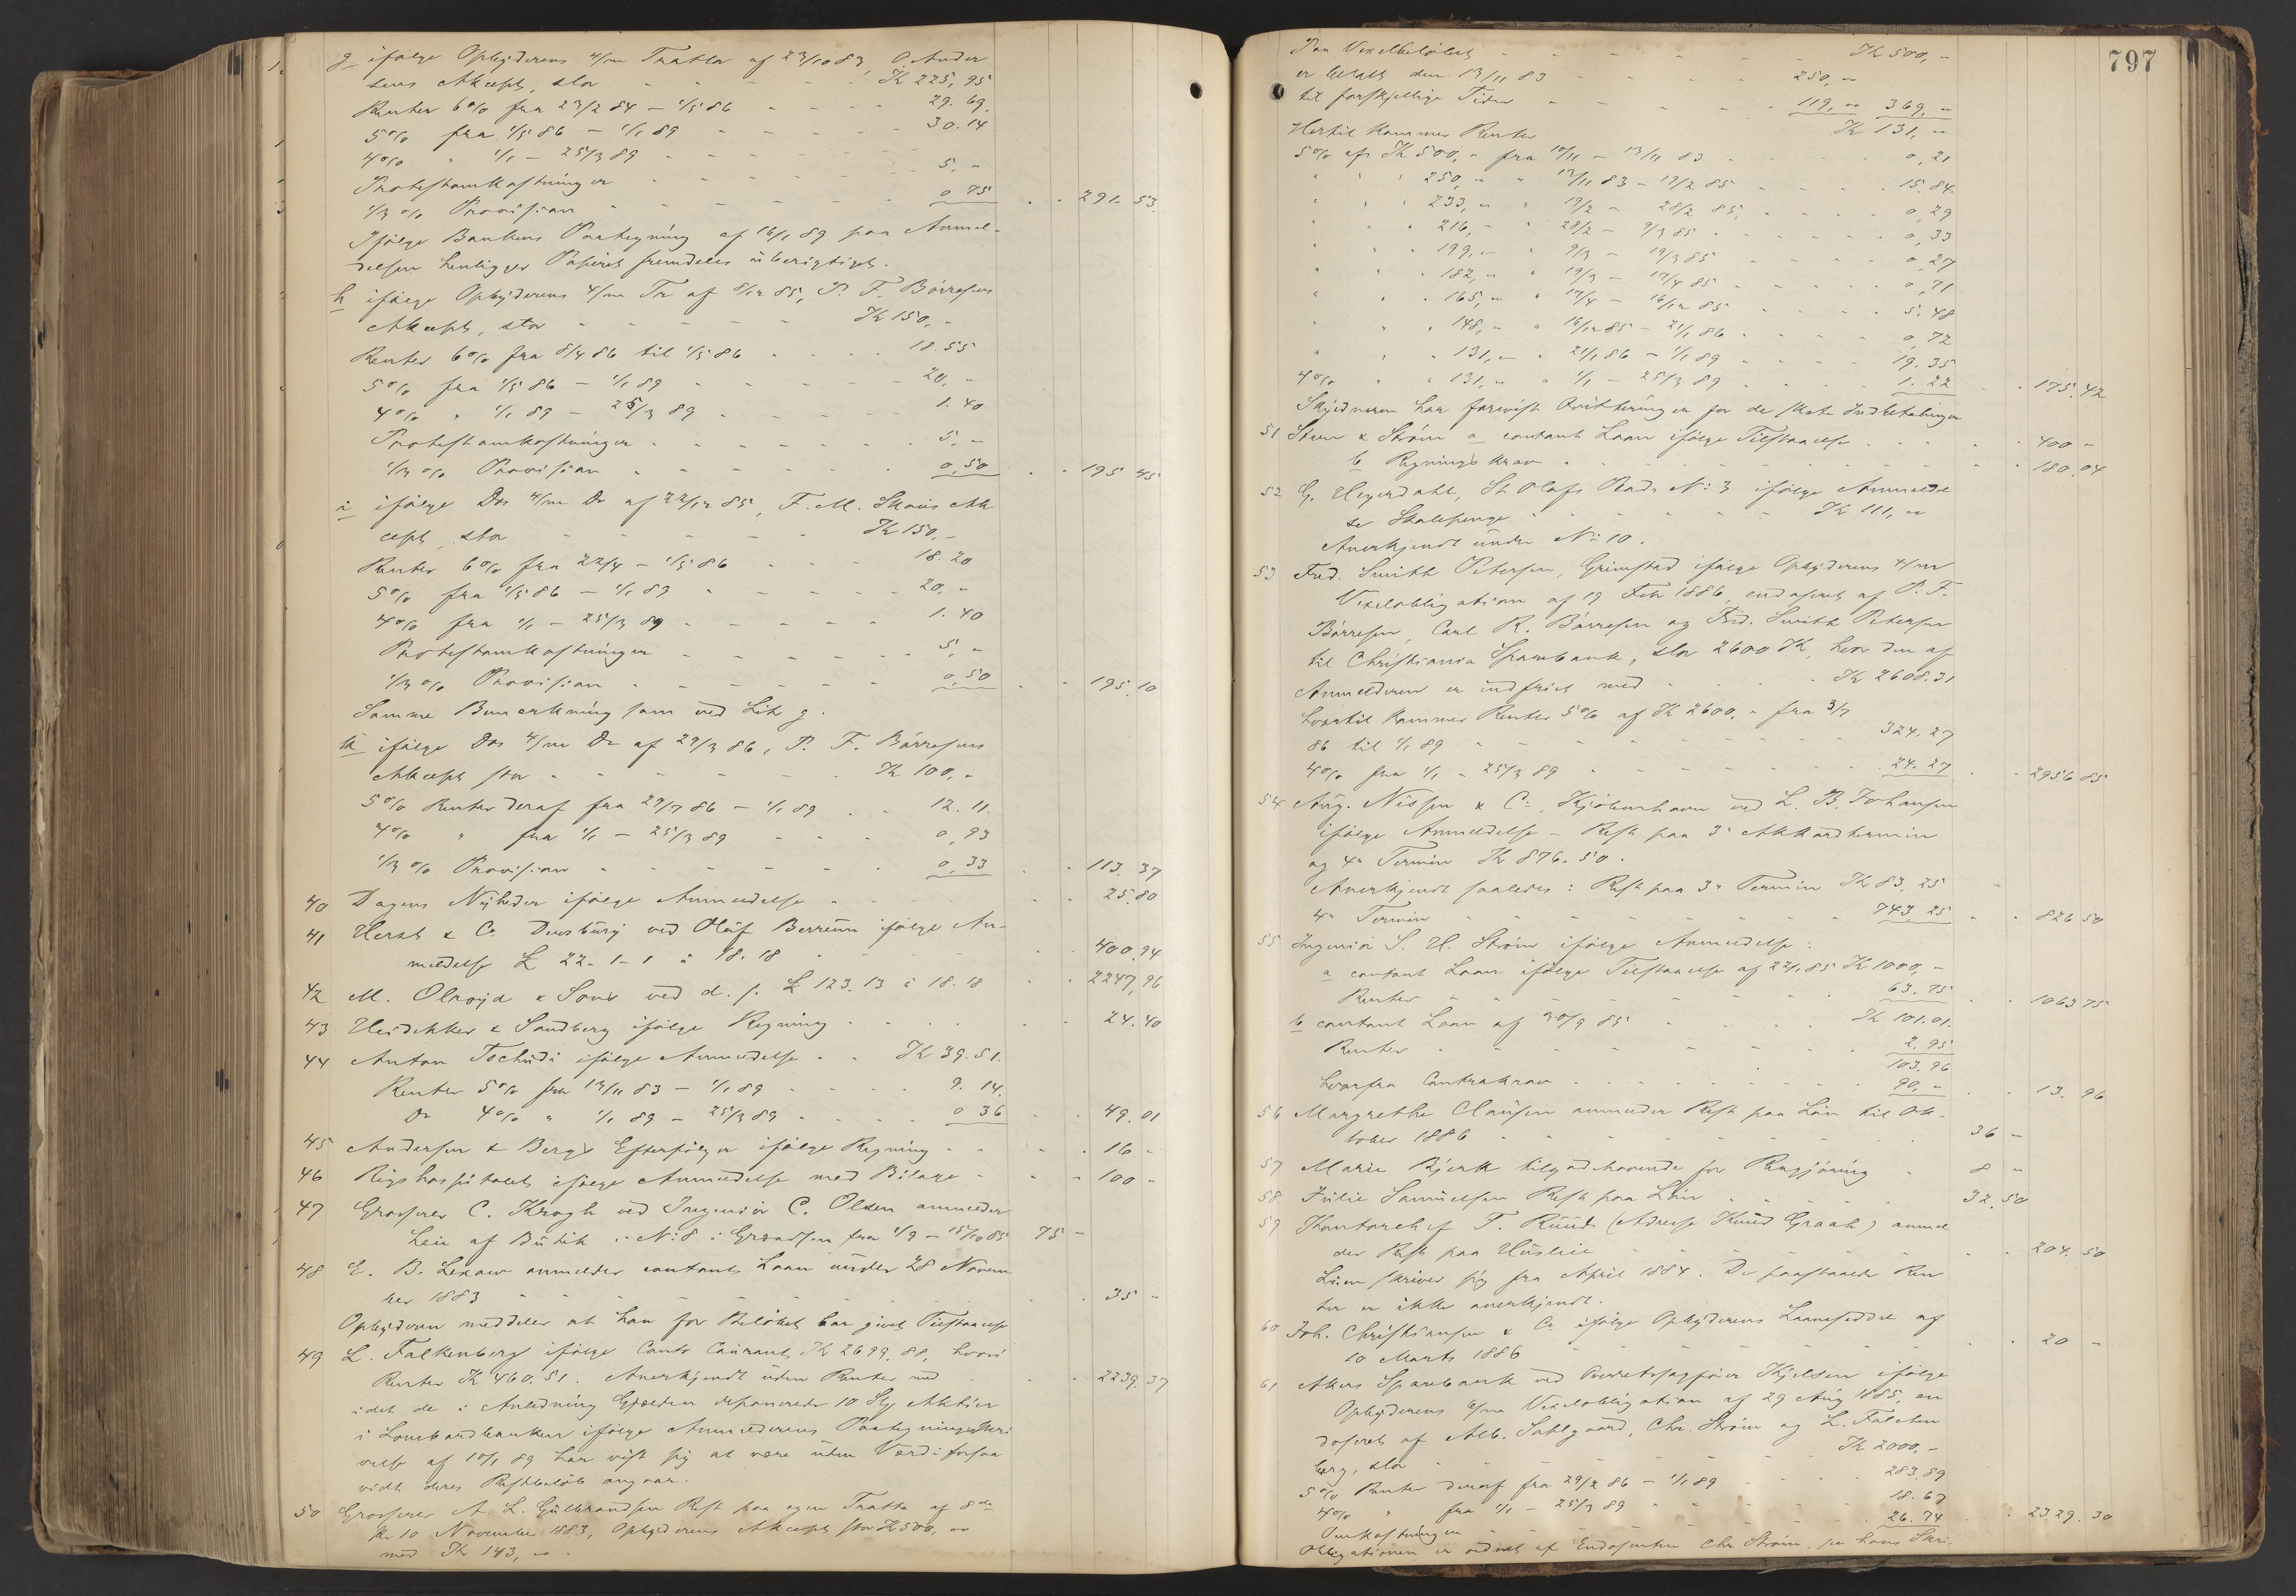 g ifölge Opbyderens 4/m Tratta af 23/10 83, O. Ander
sens Akcept, stor - - - - Kr 225,95
Renter 6% fra 23/2 84 - 1/5 86 - - - - 29.69.
5% fra 1/5 86 - 1/1 89 - - - - 30.14
4% " 1/1 - 25/3 89 - - - -
Protestomkostninger - - - - 5,-
1/3 % Provision - - - - 0 75 291.53.
Ifölge Bankens Paategning af 16/1 89 paa Anmel-
delsen henligger Papiret fremdeles uberigtiget.
h ifölge Opbyderens 4/m Tr. af 8/12 85, P. F. Börresens
Akcept, stor - - - - Kr 150,-
Renter 6% fra 8/4 86 til 1/5 86 - - - 18.55
5% fra 1/5 86 - 1/1 89 - - - - 20,-
4% " 1/1 89 - 25/3 89 - - - - 1.40
Protestomkostninger - - - - 5,-
1/3 % Provision - - - - 0,50 195 45
i ifölge Dos 4/m Do af 22/12 85, F. M. Skous Ak
cept, stor - - - - Kr 150,-
Renter 6% fra 22/4 - 1/5 86 - - - 18.20
5% fra 1/5 86 - 1/1 89 - - - - 20,-
4% fra 1/1 - 25/3 89 - - - - 1.40
Protestomkostninger - - - - 5,-
1/3 % Provision - - - - 0,50 195.10
Samme Bemerkning som ved Lit g.
k ifölge Dos 4/m Do af 29/3 86, P. F. Börresens
Akcept stor - - - - Kr 100,-
5% Renter deraf fra 29/7 86 - 1/1 89 - - 12.11.
4% " fra 1/1 - 25/3 89 - - - 0,93
1/3 % Provision - - - - 0,33 113.37
40 Dagens Nyheder ifölge Anmeldelse - - 25.80
41 Hersh & Co. Dewsbury ved Oluf Berrum ifölge An-
meldelse £ 22-1-1 à 18.18 - - 400.94
42 M. Olroyd & Sons ved d. s. £ 123.13 à 18.18 2247,96
43 Heidekker & Sandberg ifölge Regning - - 24.40
44 Anton Tschudi ifölge Anmeldelse - - Kr 39.51.
Renter 5% fra 13/11 83 - 1/1 89 - - - 9.14.
Do 4% " 1/1 89 - 25/3 89 - - - 0 36 49.01
45 Andersen & Bergs Efterfölger ifölge Regning - - 16 -
46 Rigshospitalet ifölge Anmeldelse med Bilage - - 100 -
47 Grosserer C. Krogh ved Ingeniör C. Olsen anmelder
Leie af Butik i No 8 i Grændsen fra 1/9 - 15/10 85 75 -
48 E. B. Lexow anmelder contant Laan under 28 Novem
ber 1883 - - - - 35 -
Opbyderen meddeler at han for Belöbet har givet Tilstaaelse
49 L. Falkenberg ifölge Conto Courant Kr 2699.88, hvori
Renter Kr 460.51. Anerkjendt uden Renter med - - 2239.37
idet de i Anledning Gjælden deponerede 10 Stk Aktier
i Lombardbanken ifölge Anmelderens Paategningsskri
velse af 10/1 89 har vist sig at være uden Værdi forsaa
vidt deres Restbelöb angaar.
50 Grosserer A. L. Gulbrandsen Rest paa egen Tratta af 8de
pr 10 November 1883, Opbyderens Akcept stor Kr 500,-
med Kr 143,-.
797
Paa Vexelbelöbet - - - - Kr 500,-
er betalt den 13/11 83 - - - 250,-
til forskjellige Tider - - - 119,- 369,-
Hertil kommer Renter Kr 131,-
5% af Kr 500,- fra 10/11 - 13/11 83 - - 0,21
" " " 250,- " 13/11 83 - 19/2 85 - - 15.84.
" " " 233,- " 19/2 - 28/2 85, - - 0,29
" " " 216,- " 28/2 - 9/3 85 - - 0,33
" " " 199,- " 9/3 - 19/3 85 - - 0,27
" " " 182,- " 19/3 - 17/4 85 - - 0,71
" " " 165,- " 17/4 - 16/12 85 - - 5.48
" " " 148,- " 16/12 85 - 21/1 86 - - 0,72
" " " 131,- " 21/1 86 - 1/1 89 - - 19.35
4% " " 131,- " 1/1 - 25/3 89 - - 1.22 175.42
Skyldneren har forevist Qvitteringer for de skete Indbetalinger
51 Steen & Ström a contant Laan ifölge Tilstaaelse - - 400 -
b Regningskrav - - - - 180.04
52 G. Hegerdahl, St Olafs Gade No 3 ifölge Anmeldel
se Skolepenge - - - - Kr 111,-
Anerkjendt under No 10.
53 Fred. Smith Petersen, Grimstad ifölge Opbyderens 4/m
Vexelobligation af 19 Feb 1886, endosseret af P. F.
Börresen, Carl R. Börresen og Fred. Smith Petersen
til Christiania Sparebank, stor 2600 Kr, hvor den af
Anmelderen er indfriet med - - - Kr 2608.31
hvortil kommer Renter 5% af Kr 2600,- fra 3/7
86 til 1/1 89 - - - - 324.27
4% fra 1/1 - 25/3 89 - - - - 24.27 2956 85
54 Aug. Nissen & Co, Kjöbenhavn ved L. B. Johansen
ifölge Anmeldelse - Rest paa 3e Akkordtermin
og 4e Termin Kr 876.50.
Anerkjendt saaledes: Rest paa 3e Termin Kr 83,25
4e Termin - - - - 743,25 826 50
55 Ingeniör S. H. Ström ifölge Anmeldelse:
a contant Laan ifölge Tilstaaelse af 22/1 85 Kr 1000,-
Renter - - - - 63.75 1063 75
b contant Laan af 30/9 85 - - - - Kr 101.01.
Renter - - - - 2.95
103.96
hvorfra Contrakrav - - - - 90,- 13.96
56 Margrethe Clausen anmelder Rest paa Lön til Ok-
tober 1886 - - - - 36 -
57 Marie Bjerk tilgodehavende for Rengjöring - 8 -
58 Julie Samuelsen Rest paa Lön - - - 32.50
59 Kontorchef T. Ruud (Adresse Knud Graah) anmel
der Rest paa Husleie - - - - 204.50
Leien skriver sig fra April 1884. De paastaaede Ren
ter er ikke anerkjendt.
60 Joh. Christiansen & Co ifölge Opbyderens Laaneseddel af
10 Marts 1886 - - - - 20 -
61 Akers Sparebank ved Overretssagförer Kjelsen ifölge
Opbyderens 6/m Vexelobligation af 29 Aug 1885, en
dosseret af Alb. Sahlgaard, Chr. Ström og L. Falken
berg, stor - - - - Kr 2000,-
5% Renter deraf fra 29/2 86 - 1/1 89 - - 283.89
4% " fra 1/1 - 25/3 89 - - 18.67
Omkostninger - - - - 26.74 2329.30
Obligationen er ordnet af Endossenten Chr Ström, se hans Skri-